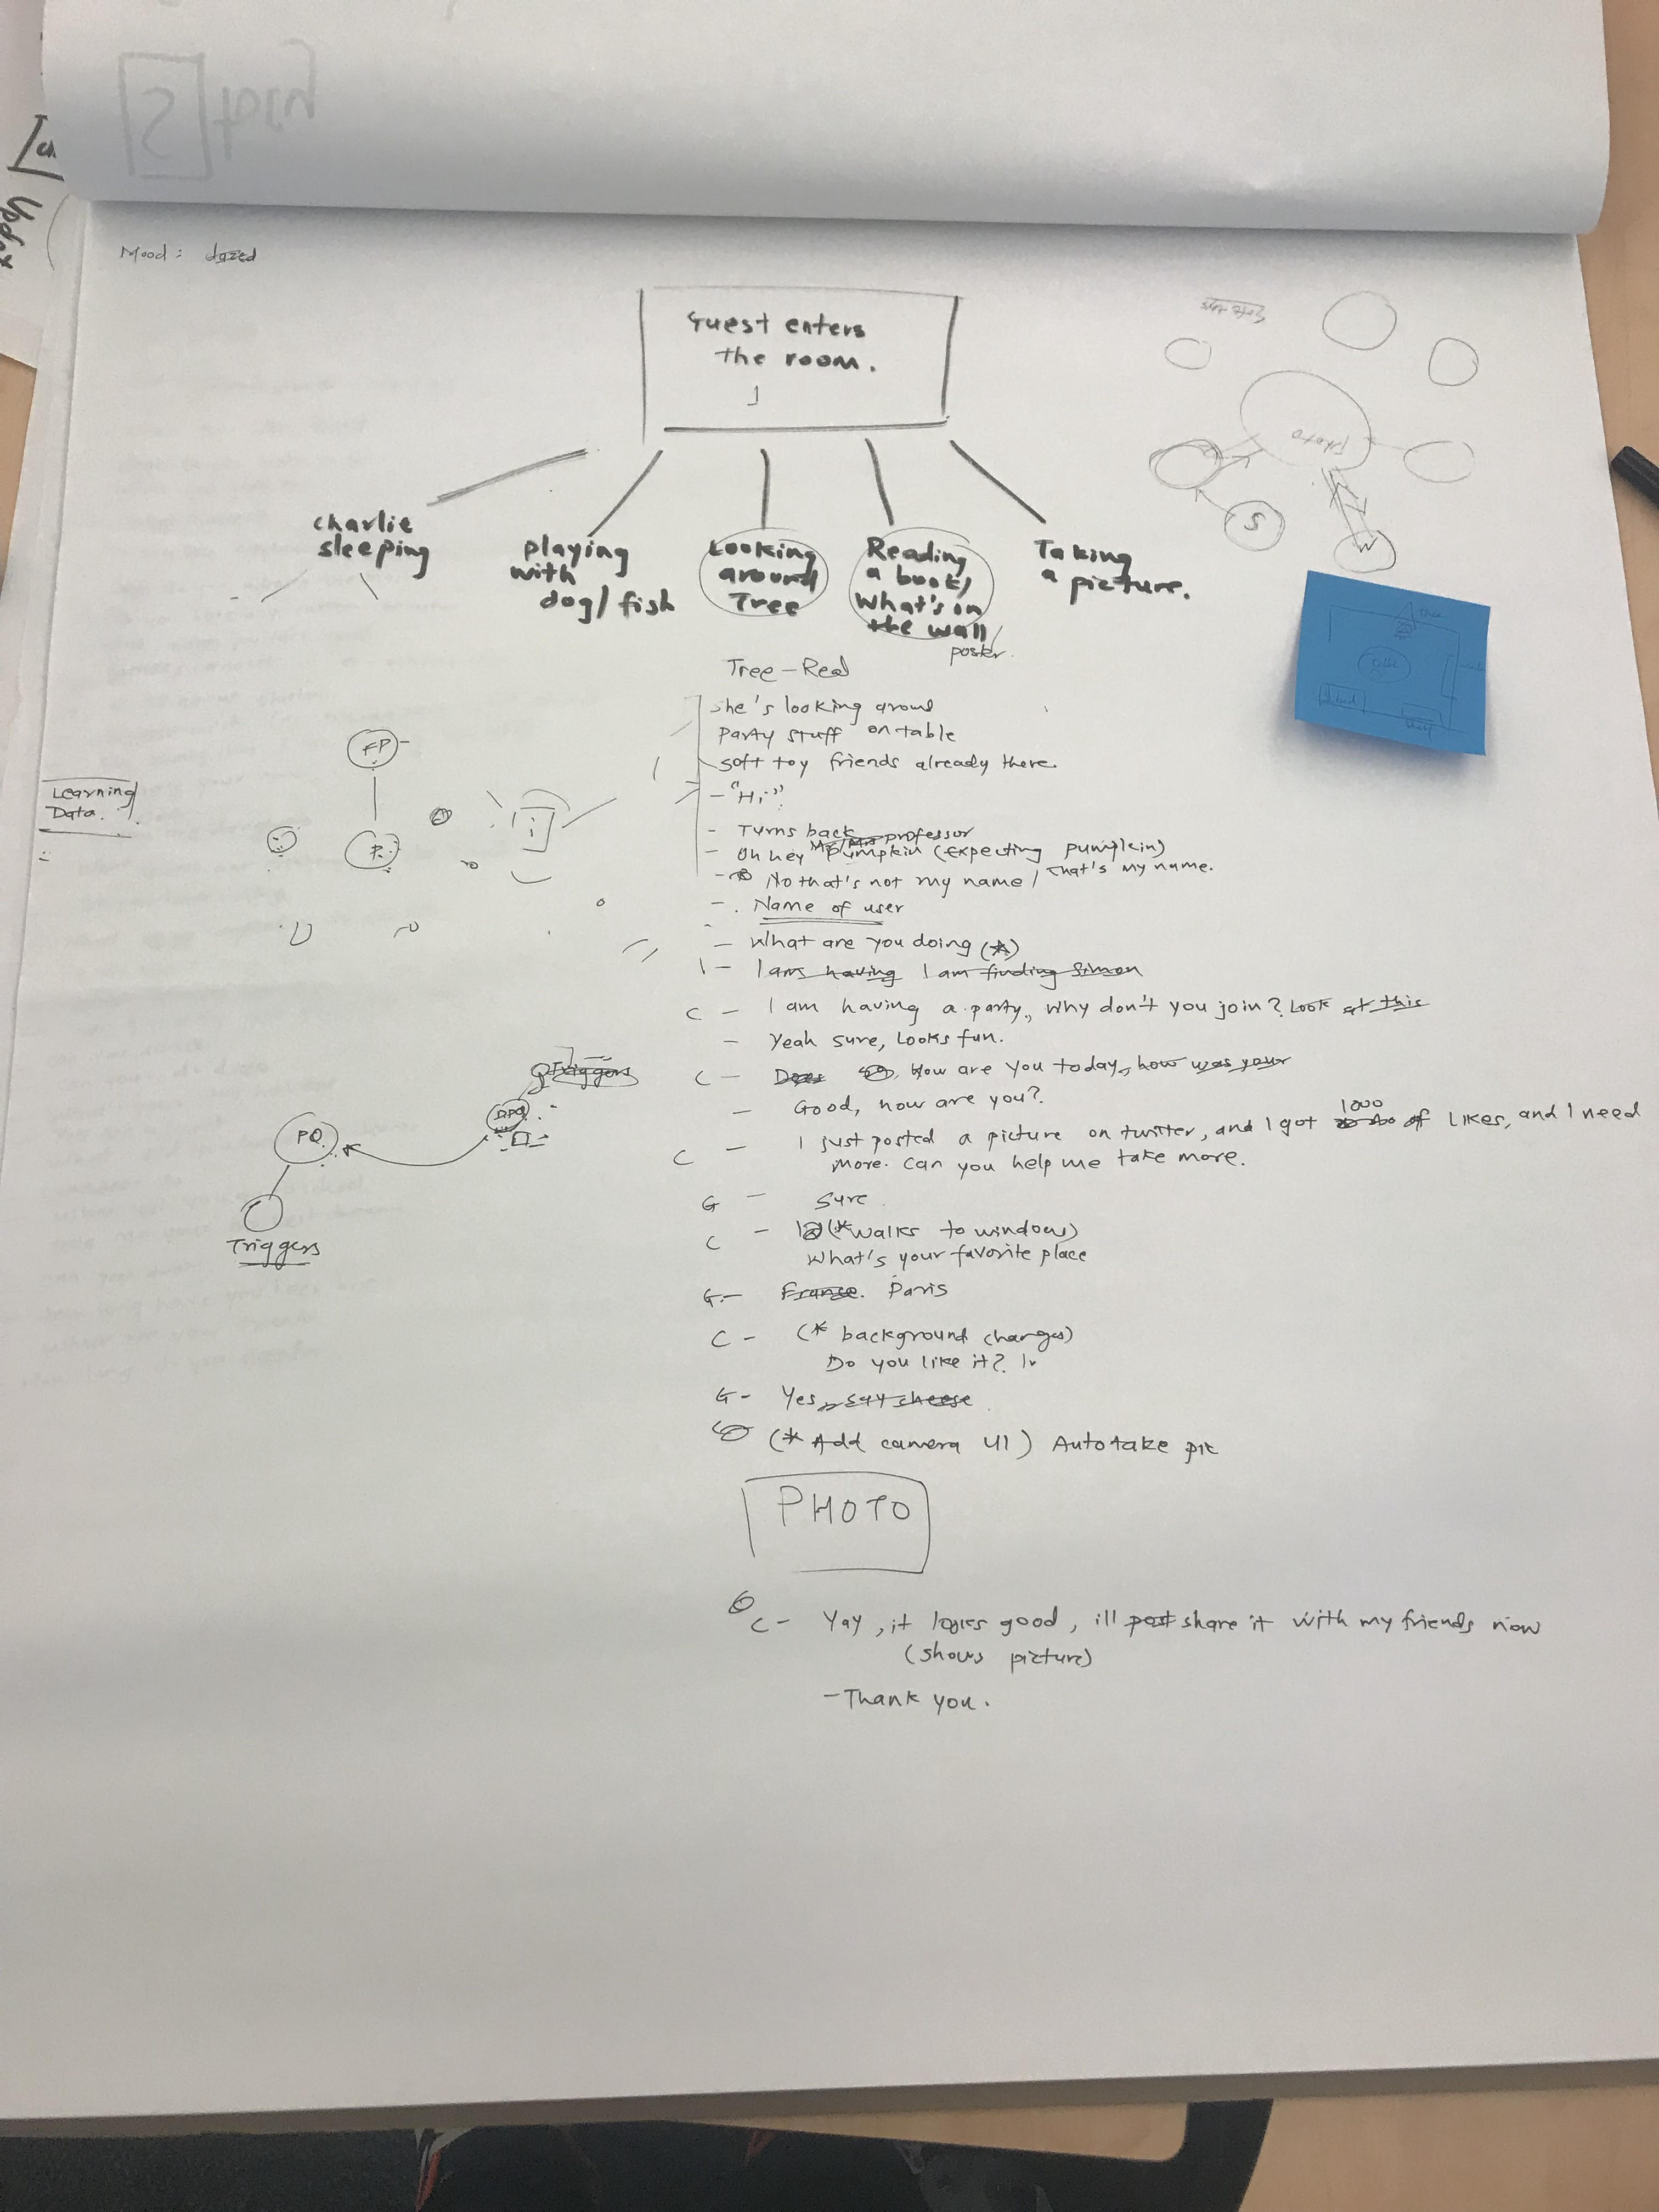 Mood: dazed
Guest enters
the room.
Charlie
sleeping
playing
with
dog/fish
Looking
around
Tree
Reading
a book/
What's on
the wall/
poster
Taking
a picture.
Photo
S
W
Tree-Real
She's looking around
Party stuff on table
soft toy friends already there.
- "Hi"
- Turns back professor
- Oh hey pumpkin (expecting pumplein)
- No that's not my name / That's my name.
- Name of user
- What are you doing (*)
- I am having I am finding Simon
C - I am having a party, why don't you join? Look at this
- Yeah sure, Looks fun.
C - How are you today, how was your
- Good, how are you?
C - I just posted a picture on twitter, and I got 1000 of likes, and I need
more. can you help me take more.
G - Sure
C - (*walks to window)
What's your favorite place
G - France. Paris
C - (* background changes)
Do you like it?
G - Yes, say cheese
(* Add camera UI) Auto take pic
PHOTO
C - Yay, it looks good, ill post share it with my friends now
(shows picture)
- Thank you.
Learning
Data.
FP
P.
Triggers
PQ
Triggers